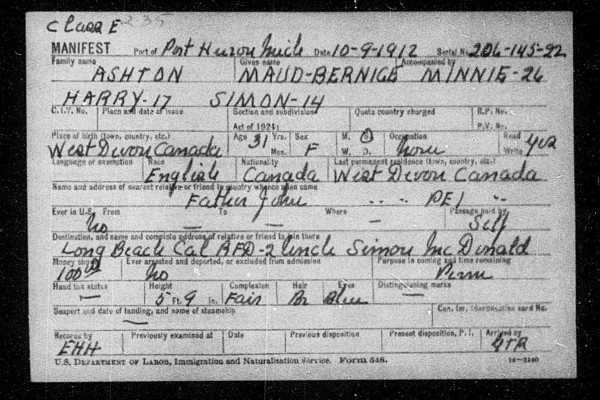 Class E 235
MANIFEST Port of Port Huron Mich Date 10-9-1912 Serial No. 206-145-22
Family name Given name Accompanied by
ASHTON MAUD-BERNICE MINNIE-26
HARRY-17 SIMON-14
C.I.V. No. Place and date of issue Section and subdivision Quota country charged R.P. No.
Act of 1924: P.V. No.
Place of birth (town, country, etc.) Age Yrs. Sex M. S. Occupation Read
West Devon Canada 31 Mos. F W. D. none Write yes
Language or exemption Race Nationality Last permanent residence (town, country, etc.)
English Canada West Devon Canada
Name and address of nearest relative or friend in country whence alien came
Father John " " PEI "
Ever in U.S. From To Where Passage paid by
No — — — Self
Destination, and name and complete address of relative or friend to join there
Long Beach Cal RFD-2 Uncle Simon McDonald
Money shown Ever arrested and deported, or excluded from admission Purpose in coming and time remaining
100 No Perm
Head tax status Height Complexion Hair Eyes Distinguishing marks
— 5 Ft. 9 in. Fair Br Blue —
Seaport and date of landing, and name of steamship
—
Records by Previously examined at Date Previous disposition Present disposition, P.I. Arrived by
EHH GTR
U.S. DEPARTMENT OF LABOR, Immigration and Naturalization Service. Form 548. 14-2160